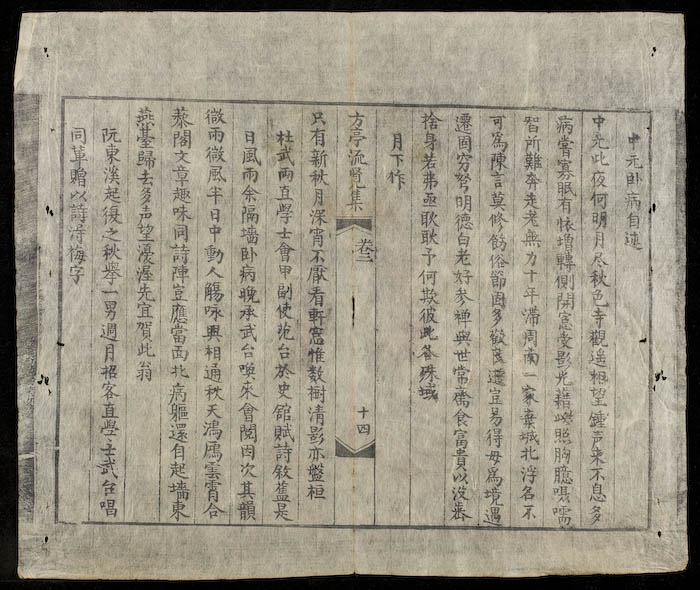 中元卧病自述
中元此夜何明月尽秋色寺觀遥相望鍾声来不息多
病嘗寡眠有怀增轉側開窓受影光藉此照胸臆嗫嚅
智所難奔走老無力十年滞周南一家棄城北浮名不
可爲陳言莫修飭俗節固多歡變遷宜易得毋爲境遇
遷固窮努明德白老好参禅與世常齋食富貴以没齿
捨身若弗亟耿耿予何欺彼此各殊域
月下作
方亭流覽集 卷三 十四
只有新秋月深宵不厭看軒窓惟数樹清影亦盤桓
杜武兩直學士會甲副使范台於史館賦詩敘舊是
日風雨余隔墻卧病晚承武台喚來會閱因次其韻
微雨微風半日中動人觴咏興相通秋天鴻鴈雲霄合
藜閣文章趣味同詩陣豈應當面北病軀還自起墻東
燕臺歸去多声望渥先宜賀此翁
阮東溪起復之秋擧一男週月招客直學士武台唱
同草贈以詩得梅字